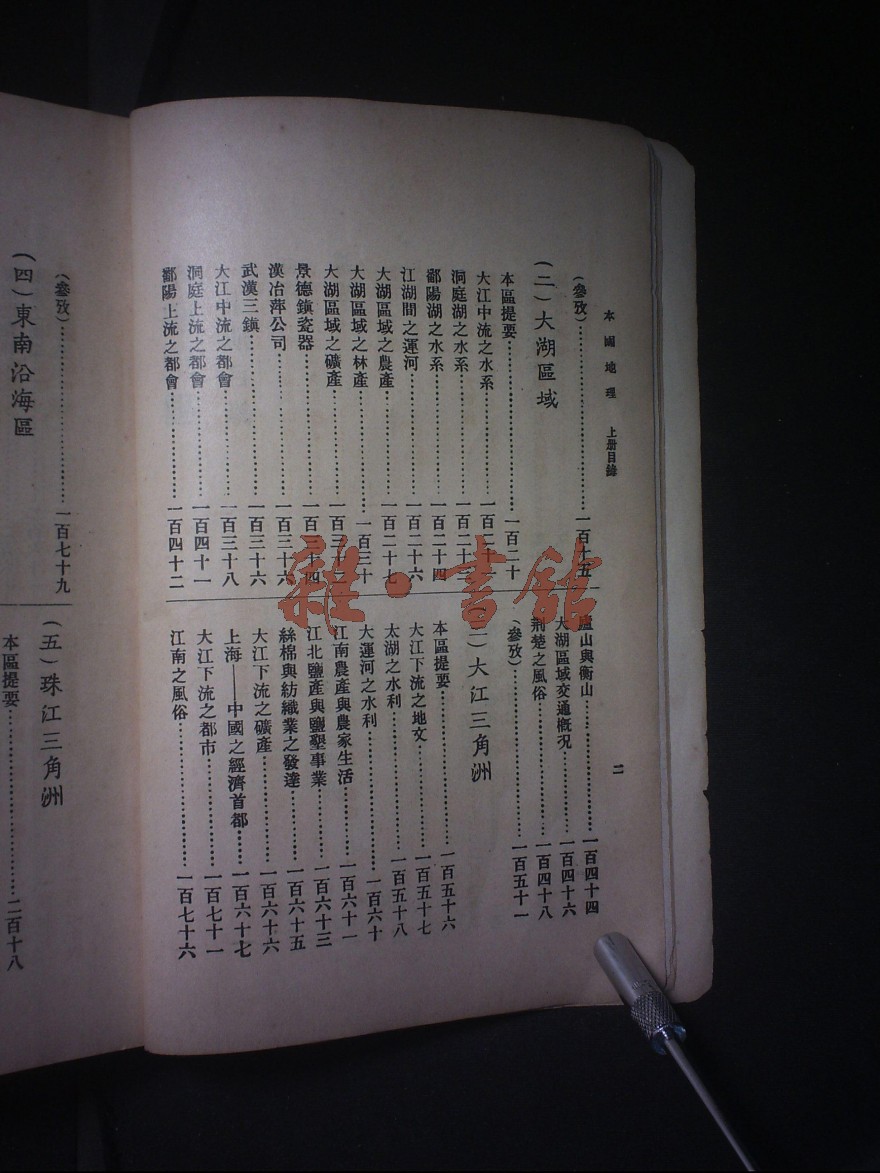 本國地理 上册目錄
(參攷)……一百十五
(二)大湖區域
本區提要……一百二十
大江中流之水系……
洞庭湖之水系……
鄱陽湖之水系……一百二十四
江湖間之運河……一百二十六
大湖區域之農產……一百二十七
大湖區域之林產……一百三十
大湖區域之礦產……
景德鎮瓷器……一百三十四
漢冶萍公司……一百三十六
武漢三鎮……一百三十六
大江中流之都會……一百三十八
洞庭上流之都會……一百四十一
鄱陽上流之都會……一百四十二
二
廬山與衡山……一百四十四
大湖區域交通概况……一百四十六
荆楚之風俗……一百四十八
(參攷)……一百五十一
大江三角洲
本區提要……一百五十六
大江下流之地文……一百五十七
太湖之水利……一百五十八
大運河之水利……一百六十
江南農產與農家生活……一百六十一
江北鹽產與鹽墾事業……一百六十三
絲棉與紡織業之發達……一百六十五
大江下流之礦產……一百六十六
上海——中國之經濟首都……一百六十七
大江下流之都市……一百七十一
江南之風俗……一百七十六
(參攷)……一百七十九
(四)東南沿海區
(五)珠江三角洲
本區提要……二百十八
雜·書館